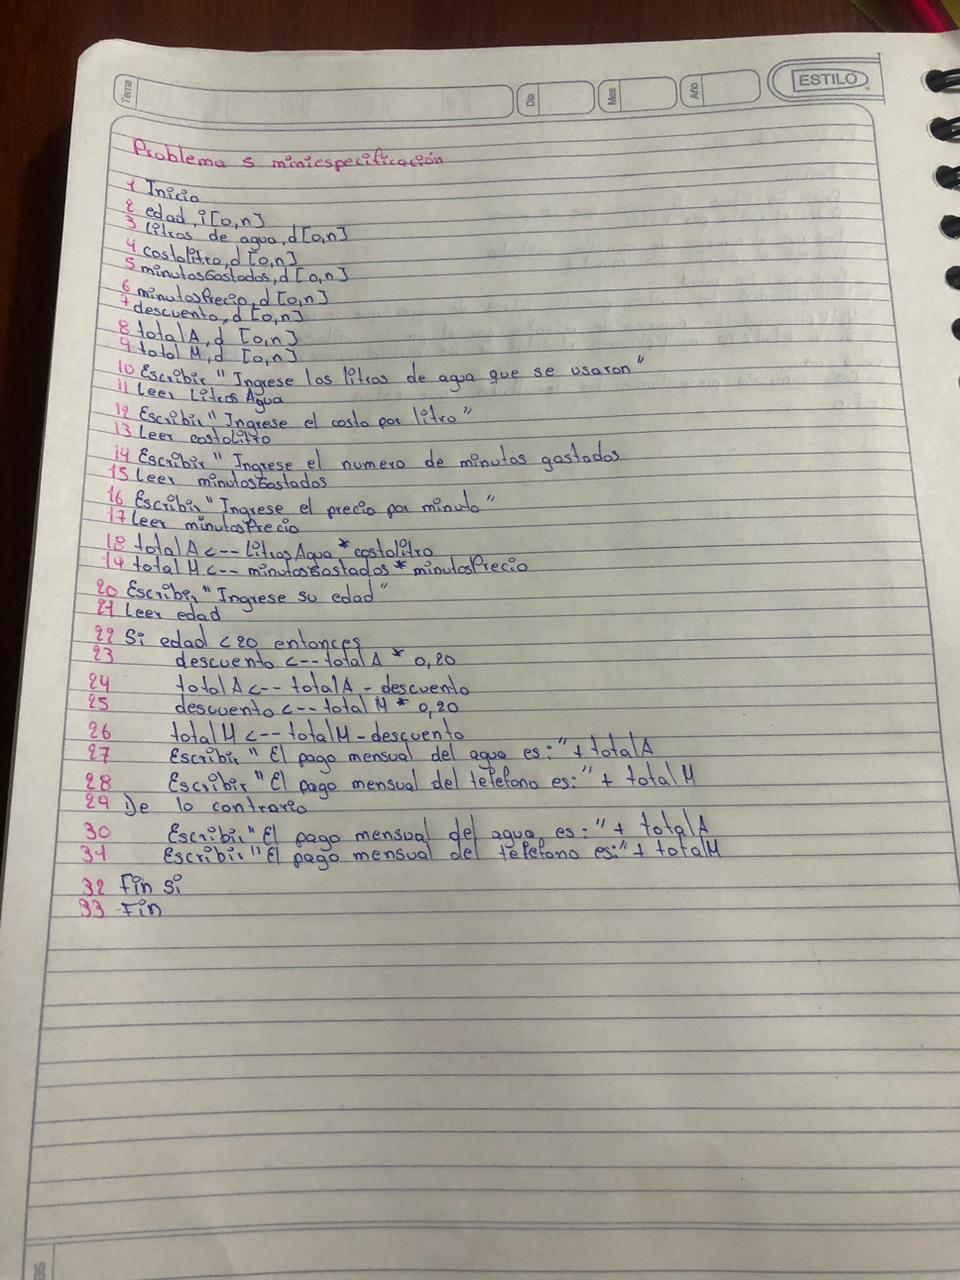 Tema
Día
Mes
Año
ESTILO
Problema 5 miniespecificación
1 Inicio
2 edad, i [0,n]
3 litros de agua, d [0,n]
4 costolitro, d [0,n]
5 minutosGastados, d [0,n]
6 minutosPrecio, d [0,n]
7 descuento, d [0,n]
8 totalA, d [0,n]
9 total M, d [0,n]
10 Escribir "Ingrese los litros de agua que se usaron"
11 Leer LitrosAgua
12 Escribir "Ingrese el costo por litro"
13 Leer costoLitro
14 Escribir "Ingrese el numero de minutos gastados
15 Leer minutosGastados
16 Escribir "Ingrese el precio por minuto"
17 Leer minutosPrecio
18 totalA <-- LitrosAgua * costolitro
19 total M <-- minutosGastados * minutosPrecio
20 Escribir "Ingrese su edad"
21 Leer edad
22 Si edad < 20 entonces
23 descuento <-- totalA * 0,20
24 totalA <-- totalA - descuento
25 descuento <-- total M * 0,20
26 total M <-- totalM - descuento
27 Escribir "El pago mensual del agua es:" + totalA
28 Escribir "El pago mensual del telefono es:" + totalM
29 De lo contrario
30 Escribir "El pago mensual del agua es:" + totalA
31 Escribir "El pago mensual del telefono es:" + totalM
32 Fin si
33 Fin